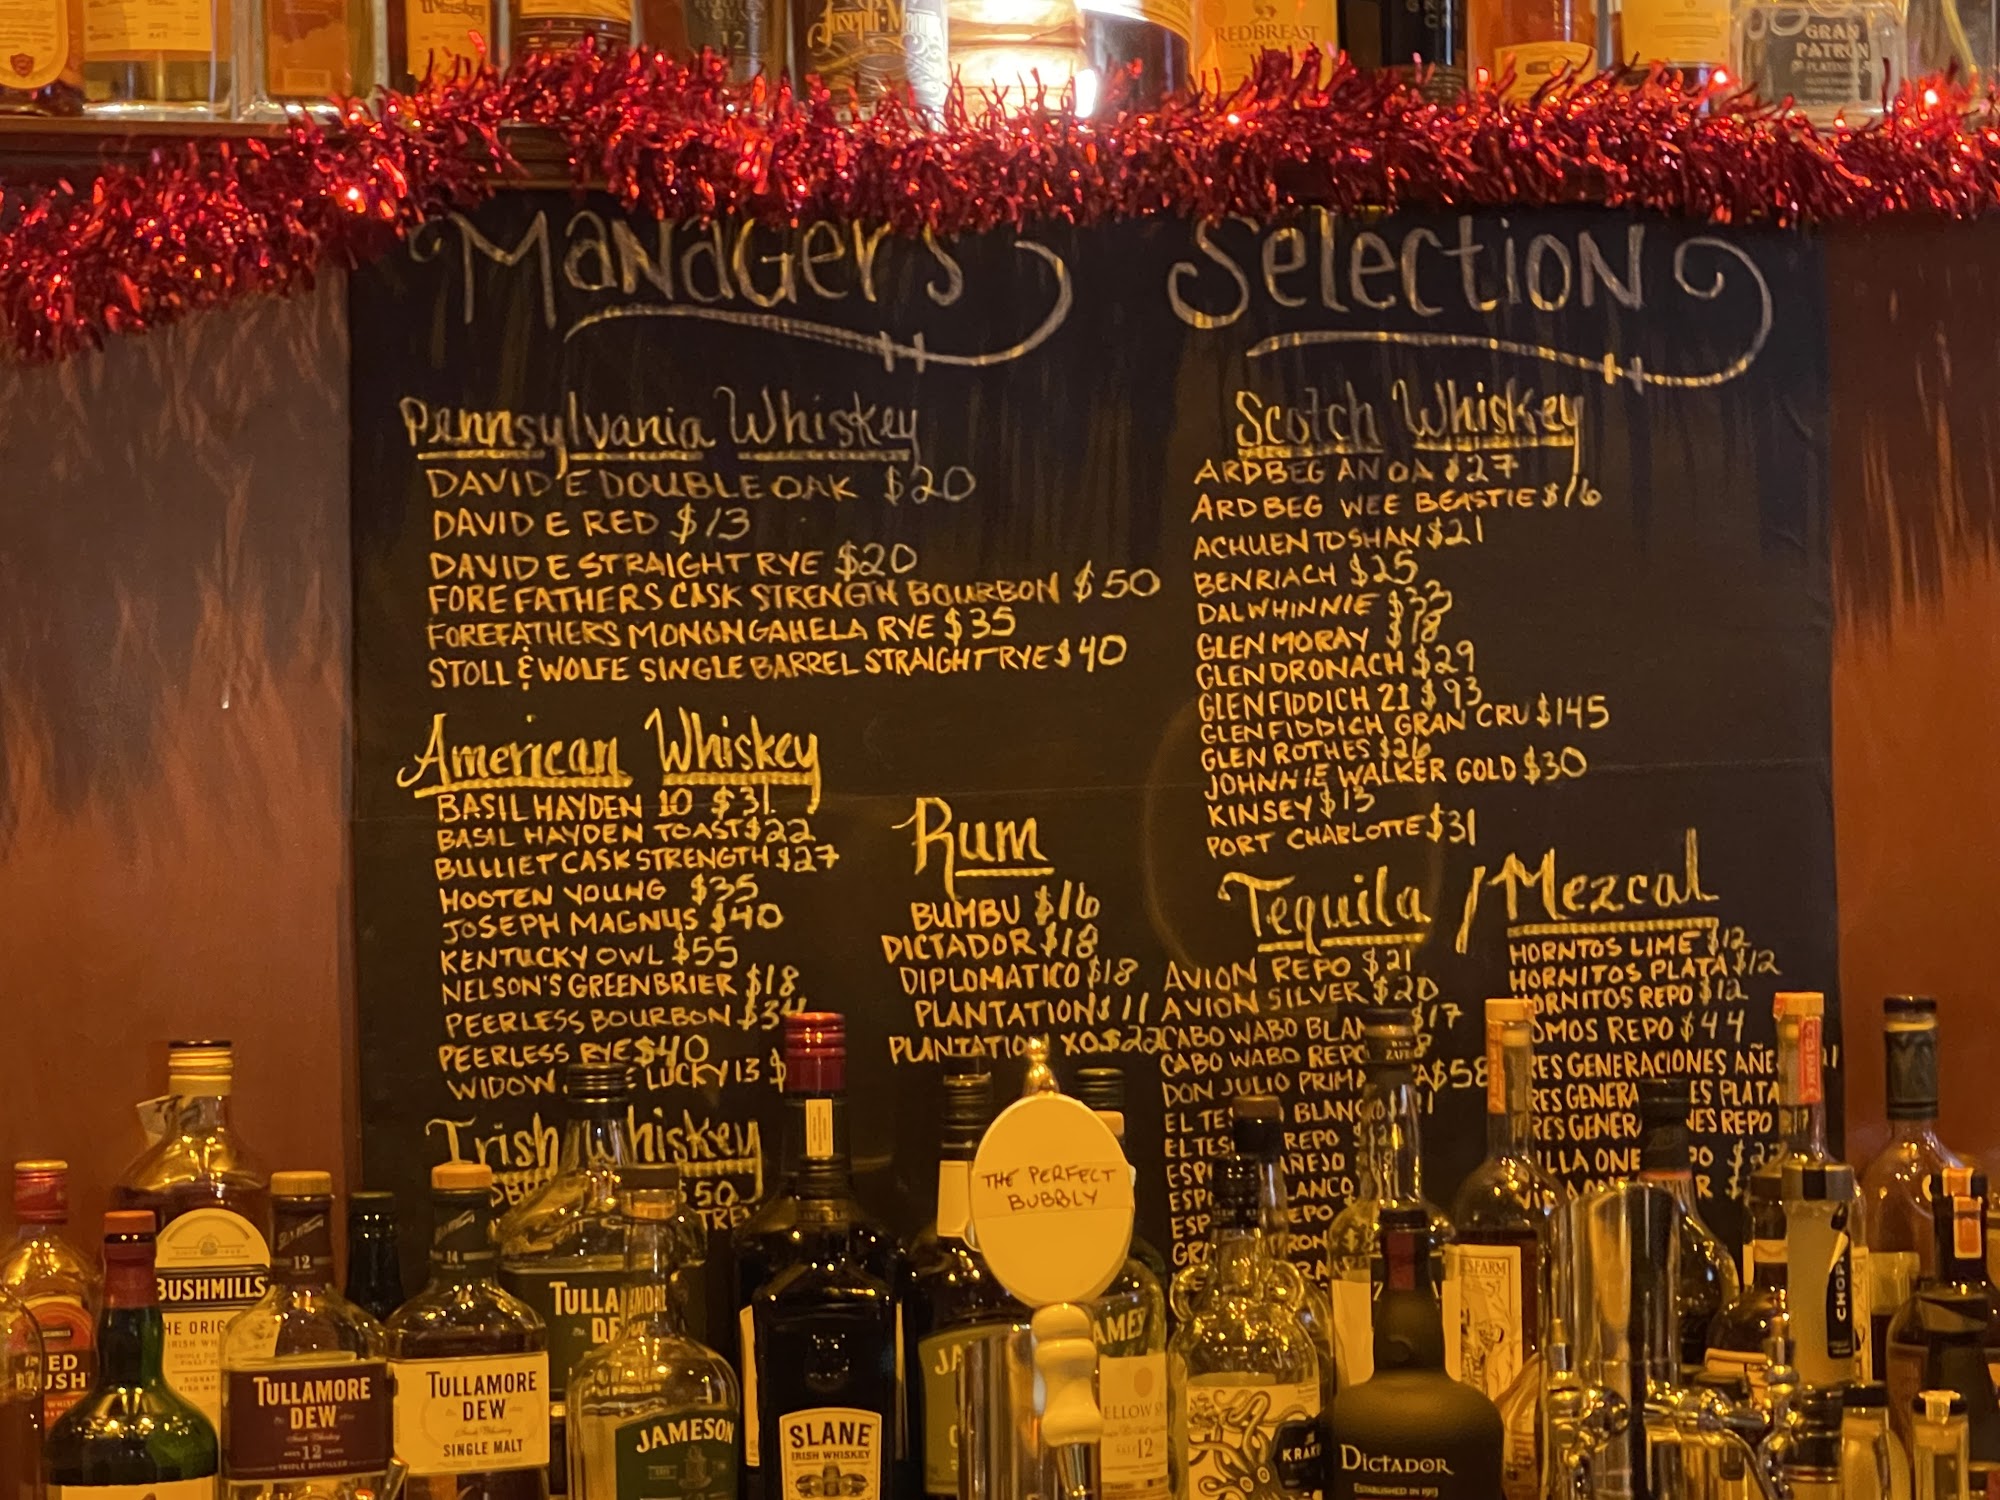 REDBREAST
GRAN
PATRÓN
PLATINUM
Managers Selection
Pennsylvania Whiskey
DAVID E DOUBLE OAK $20
DAVID E RED $13
DAVID E STRAIGHT RYE $20
FOREFATHERS CASK STRENGTH BOURBON $50
FOREFATHERS MONONGAHELA RYE $35
STOLL & WOLFE SINGLE BARREL STRAIGHT RYE $40
American Whiskey
BASIL HAYDEN 10 $31
BASIL HAYDEN TOAST $22
BULLIET CASK STRENGTH $27
HOOTEN YOUNG $35
JOSEPH MAGNUS $40
KENTUCKY OWL $55
NELSON'S GREENBRIER $18
PEERLESS BOURBON $34
PEERLESS RYE $40
WIDOW LUCKY 13 $
Irish Whiskey
$50
Rum
BUMBU $16
DICTADOR $18
DIPLOMATICO $18
PLANTATION $11
PLANTATION XO $22
Scotch Whiskey
ARDBEG AN OA $27
ARDBEG WEE BEASTIE $16
ACHUENTOSHAN $21
BENRIACH $25
DALWHINNIE $33
GLEN MORAY $18
GLENDRONACH $29
GLENFIDDICH 21 $93
GLENFIDDICH GRAN CRU $145
GLENROTHES $26
JOHNNIE WALKER GOLD $30
KINSEY $13
PORT CHARLOTTE $31
Tequila / Mezcal
AVION REPO $21
AVION SILVER $20
CABO WABO BLAN $17
CABO WABO REPO
DON JULIO PRIMA A $58
EL TES BLANCO
EL TES REPO
ESP AÑEJO
ESP LANCO
ESP EPO
HORNTOS LIME $12
HORNITOS PLATA $12
HORNITOS REPO $12
OMOS REPO $44
RES GENERACIONES AÑE
RES GENERA ES PLATA
RES GENER NES REPO
ILLA ONE
THE PERFECT
BUBBLY
BUSHMILLS
RED
BUSH
TULLAMORE
DEW
12
TULLAMORE
DEW
SINGLE MALT
TULLAMORE
JAMESON
SLANE
IRISH WHISKEY
12
KRAK
DICTADOR
ESTABLISHED IN 1913
CHOPIN